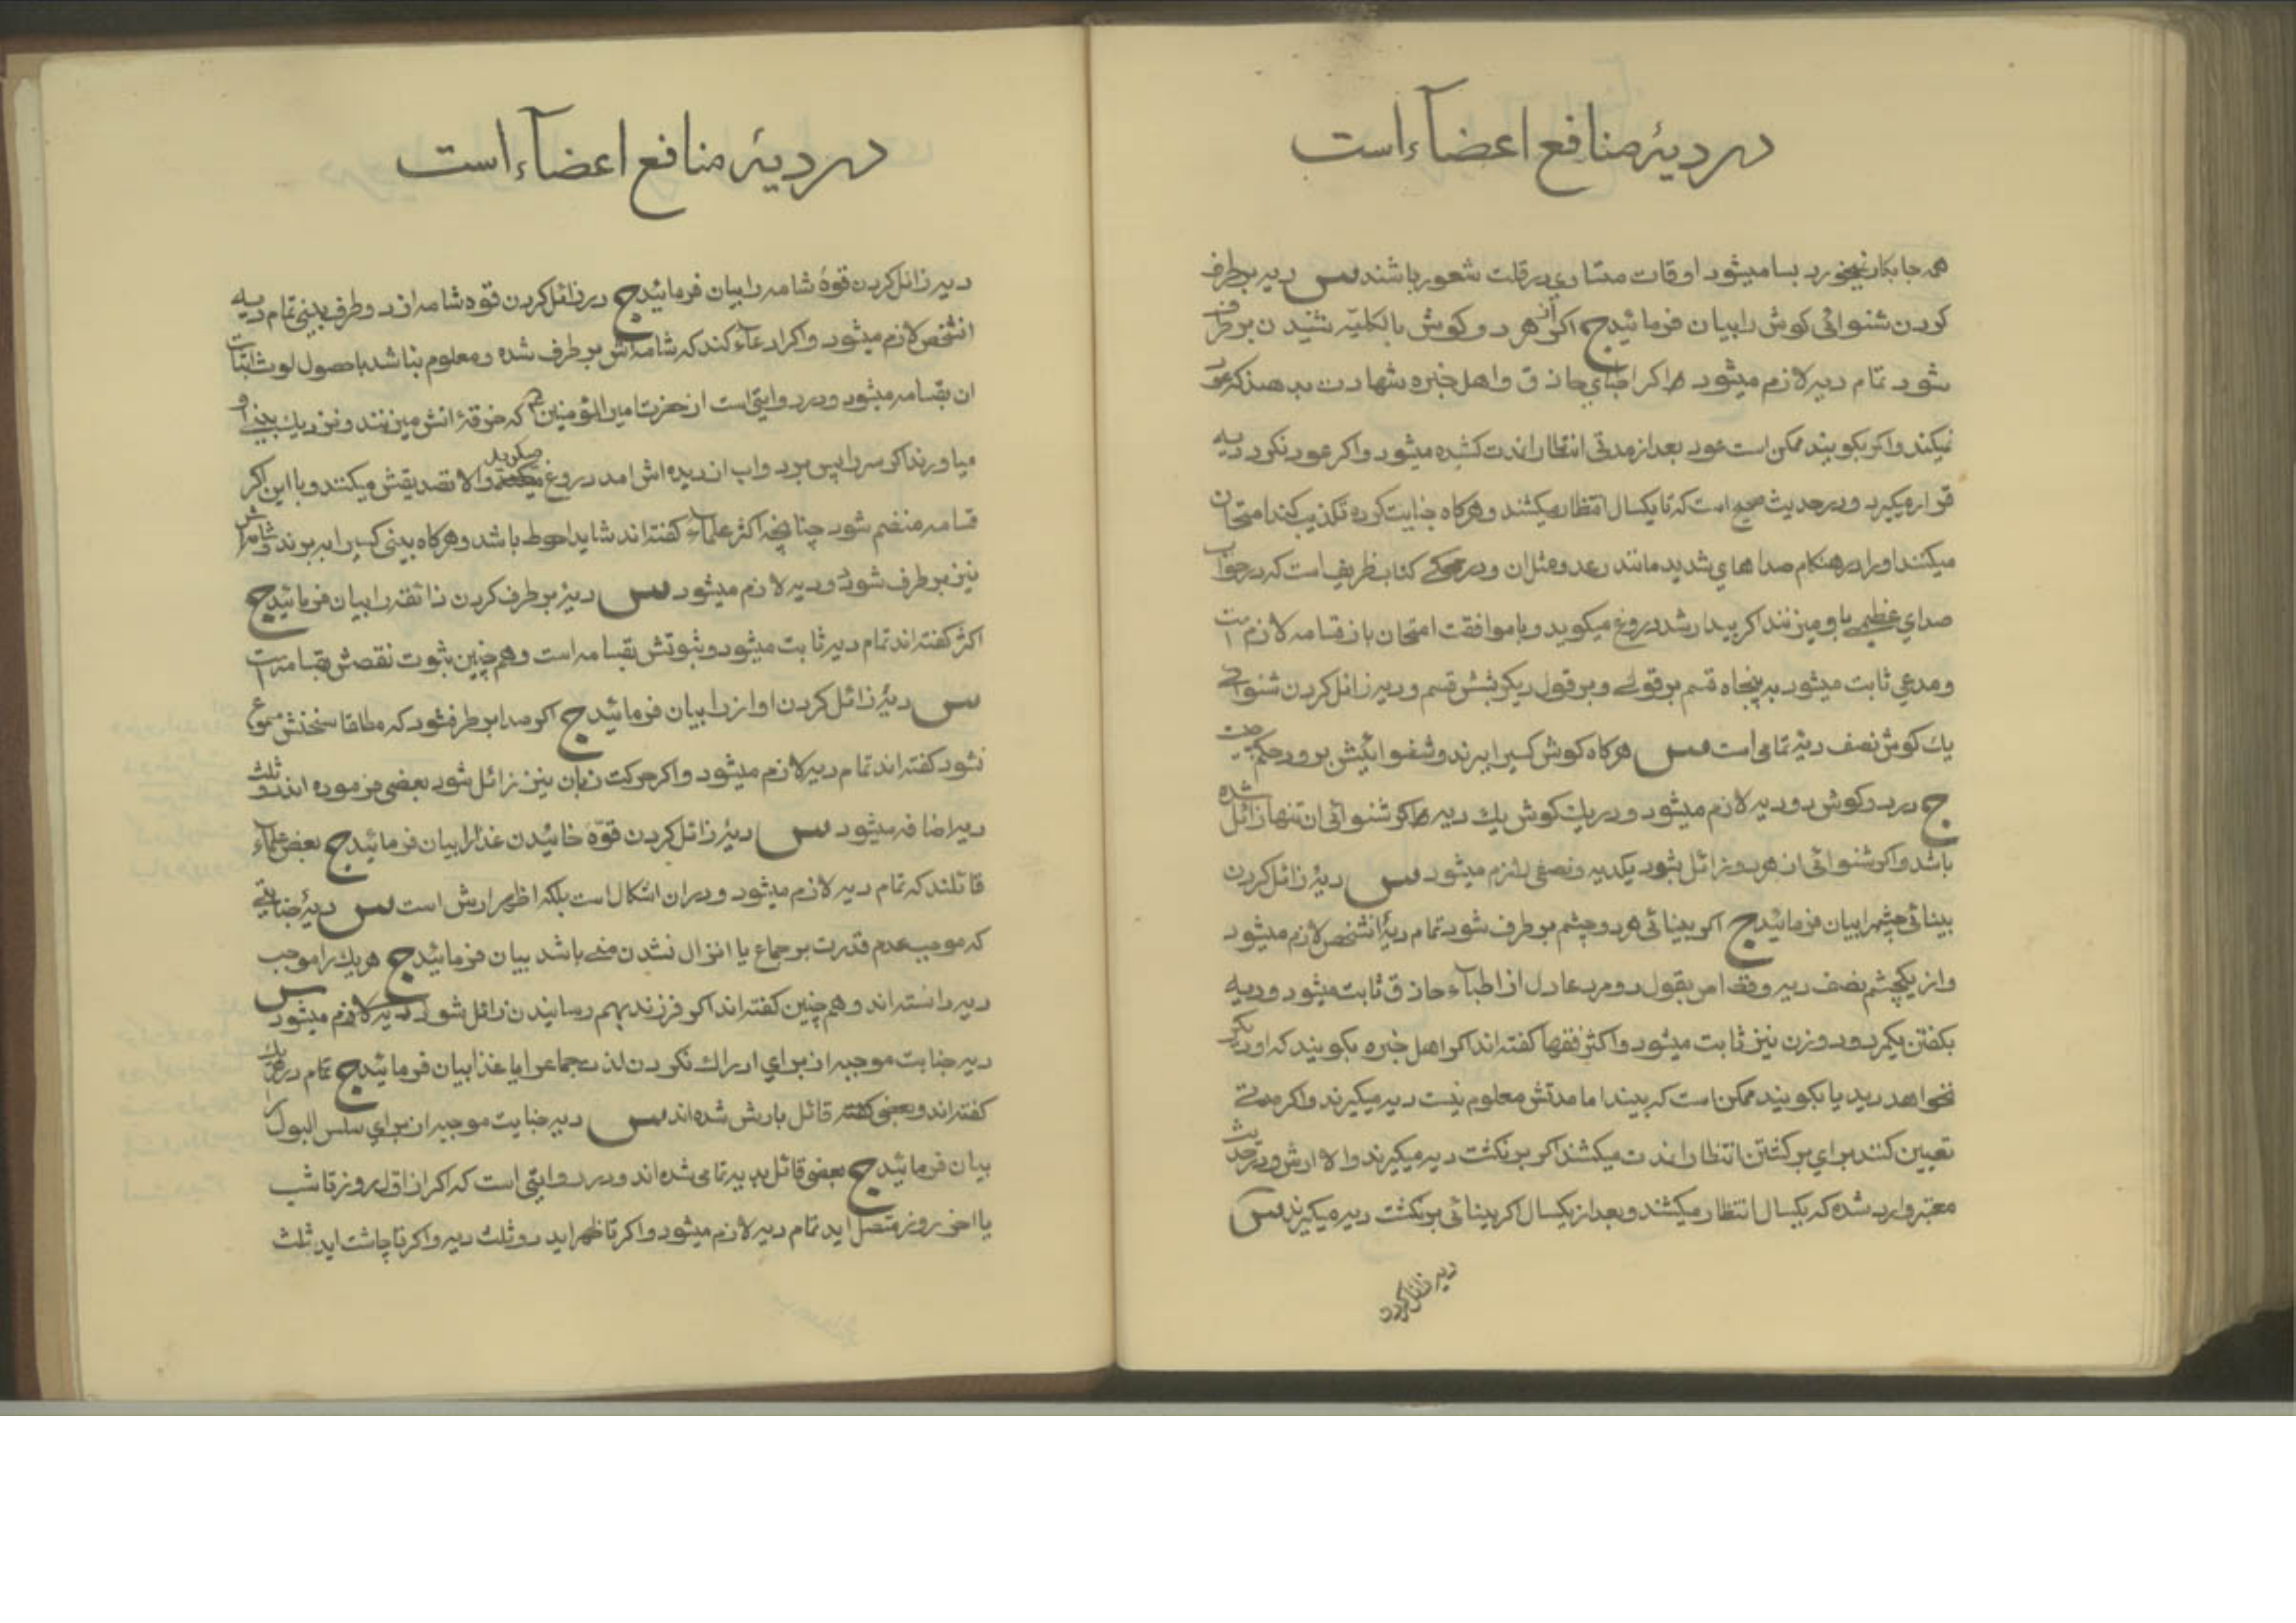 در دیهٔ منافع اعضآء است
همه جا بکار نمیخورد بسا میشود اوقات مستاوی در قلت شعور باشند س دیه برطرف
کردن شنوائی کوش را بیان فرمائید ج اکر از هر دو کوش بالکلیّه شنیدن برطرف
شود تمام دیه لازم میشود اما اکر اطبّای حاذق و اهل خبره شهادت بدهند که عود
نمیکند و اکر بکویند ممکن است عود بعد از مدتی انتظار اندت کشیده میشود و اکر عود نکرد دیه
قرار میکیرد و در حدیث صحیح است که تا یکسال انتظار میکشند و هرکاه جنایت کرده تکذیب کند امتحان
میکنند او را در هنکام صداهای شدید مانند رعد و مثل ان و در کتاب ظریف است که در خواب
صدای عظیمی باو میزنند اکر بیدار شد دروغ میکوید و با موافقت امتحان باز قسامه لازم است
و مدعی ثابت میشود به پنجاه قسم بر قولے و بر قول دیکر بشش قسم و دیه زائل کردن شنوائے
یك کوش نصف دیهٔ تمامی است س هرکاه کوش کسیرا ببرند و شنوائیش برود حکم چیست
ج در دو کوش دو دیه لازم میشود و در یك کوش یك دیه اما اکر شنوائی ان تنها زائل شده
باشد و اکر شنوائی ان هر دو زائل شود یکدیه و نصفی لازم میشود س دیهٔ زائل کردن
بینائی چشم را بیان فرمائید ج اکر بینائی هر دو چشم برطرف شود تمام دیهٔ انشخص لازم میشود
و از یکچشم نصف دیه و قصاص بقول دو مرد عادل از اطبآء حاذق ثابت میشود و دیه
بکفتن یکمرد و دو زن نیز ثابت میشود و اکثر فقها کفته اند اکر اهل خبره بکویند که او دیکر
نخواهد دید یا بکویند ممکن است که ببیند اما مدتش معلوم نیست دیه میکیرند و اکر مدتے
تعیین کنند برای برکشتن انتظار اندت میکشند اکر برنکشت دیه میکیرند والا ارش و در حدیث
معتبر وارد شده که یکسال انتظار میکشند و بعد از یکسال اکر بینائی برنکشت دیه میکیرند س
دیه زائل کردن
در دیهٔ منافع اعضآء است
دیه زائل کردن قوهٔ شامه را بیان فرمائید ج در زائل کردن قوه شامه از دو طرف بینی تمام دیه
انشخص لازم میشود و اکر ادعآء کند که شامه اش برطرف شده و معلوم نباشد با حصول لوث اثبات
ان بقسامه میشود و در روایتی است از حضرت امیر المؤمنین ع که خرقهٔ اتش میزنند و نزدیك بینی او
میاورند اکر سر را پس برد و اب از دیده اش امد دروغ میکوید والا تصدیقش میکنند و با این اکر
قسامه منضم شود چنانچه اکثر علمآء کفته اند شاید احوط باشد و هرکاه بینی کسیرا ببرند و شامه اش
نیز برطرف شود دو دیه لازم میشود س دیهٔ برطرف کردن ذائقه را بیان فرمائید ج
اکثر کفته اند تمام دیه ثابت میشود و ثبوتش بقسامه است و همچنین ثبوت نقصش بقسامه است
س دیهٔ زائل کردن اواز را بیان فرمائید ج اکر صدا برطرف شود که مطلقا سخنش مسموع
نشود کفته اند تمام دیه لازم میشود و اکر حرکت زبان نیز زائل شود بعضی فرموده اند دو ثلث
دیه اضافه میشود س دیهٔ زائل کردن قوّهٔ خائیدن غذا را بیان فرمائید ج بعض علمآء
قائلند که تمام دیه لازم میشود و در ان اشکال است بلکه اظهر ارش است س دیهٔ جنایتی
که موجب عدم قدرت بر جماع یا انزال نشدن منی باشد بیان فرمائید ج هر یك را موجب
دیه دانسته اند و همچنین کفته اند اکر فرزند بهم رسانیدن زائل شود دیه لازم میشود س
دیه جنایت موجبه از برای ادراك نکردن لذت جماع را یا غذا بیان فرمائید ج تمام در هر یك
کفته اند و بعضی قائل بارش شده اند س دیه جنایت موجبه از برای سلس البول را
بیان فرمائید ج بعضی قائل بدیه تمامی شده اند و در روایتی است که اکر از اول روز تا شب
یا اخر روز متصل اید تمام دیه لازم میشود و اکر تا ظهر اید دو ثلث دیه و اکر تا چاشت اید ثلث